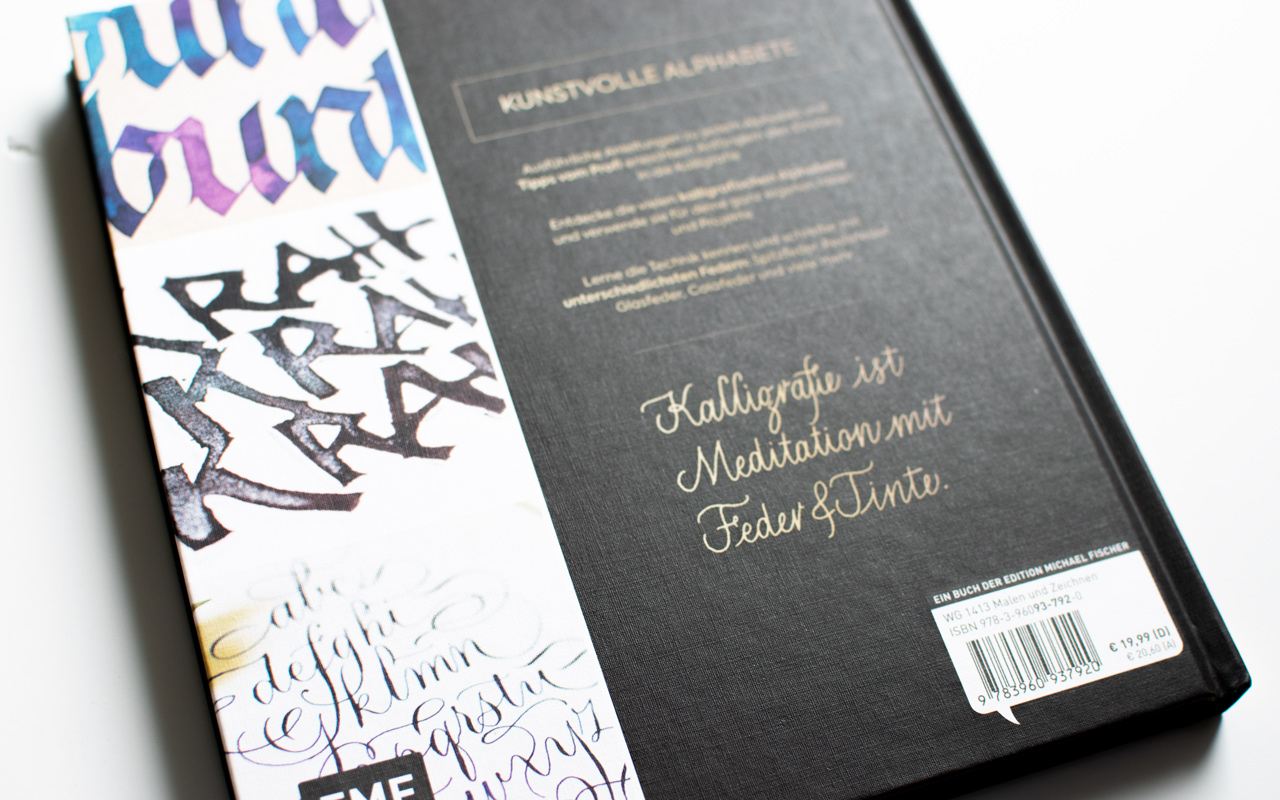 bunt
KRAH
KRAH
KRAH
abc
defghi
jklmn
opqrstu
vwxyz
EMF
KUNSTVOLLE ALPHABETE
Ausführliche Anleitungen zu
Tipps vom Profi
in die Kalligrafie
Entdecke die vielen kalligrafischen Alphabete
und verwende sie für deine ganz eigenen
und Projekte
Lerne die Technik kennen und schreibe mit
unterschiedlichsten Federn: Spitzfeder, Bandzugfeder
Glasfeder, Colafeder und viele mehr
Kalligrafie ist
Meditation mit
Feder & Tinte.
EIN BUCH DER EDITION MICHAEL FISCHER
WG 1413 Malen und Zeichnen
ISBN 978-3-96093-792-0
€ 19,99 (D)
€ 20,60 (A)
9 783960 937920